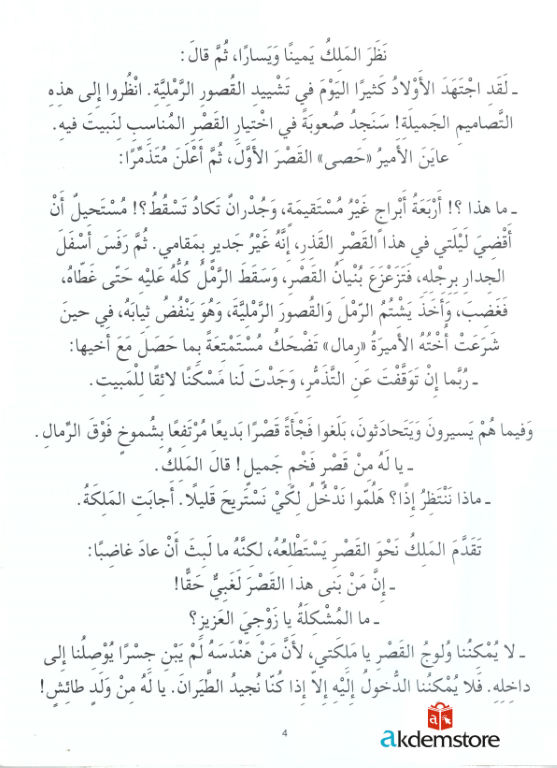 نَظَرَ المَلِكُ يَمينًا وَيَسارًا، ثُمَّ قالَ:
ـ لَقَدِ اجْتَهَدَ الأَوْلادُ كَثيرًا اليَوْمَ في تَشْييدِ القُصورِ الرَّمْلِيَّةِ. انْظُروا إلى هذِهِ
التَّصاميمِ الجَميلَةِ! سَنَجِدُ صُعوبَةً في اخْتِيارِ القَصْرِ المُناسِبِ لِنَبيتَ فيهِ.
عايَنَ الأَميرُ «حَصى» القَصْرَ الأَوَّلَ، ثُمَّ أَعْلَنَ مُتَذَمِّرًا:
ـ ما هذا ؟! أَرْبَعَةُ أَبْراجٍ غَيْرُ مُسْتَقيمَةٍ، وَجُدْرانٌ تَكادُ تَسْقُطُ؟! مُسْتَحيلٌ أَنْ
أَقْضِيَ لَيْلَتي في هذا القَصْرِ القَذِرِ، إِنَّهُ غَيْرُ جَديرٍ بِمَقامي. ثُمَّ رَفَسَ أَسْفَلَ
الجِدارِ بِرِجْلِهِ، فَتَزَعْزَعَ بُنْيانُ القَصْرِ، وَسَقَطَ الرَّمْلُ كُلُّهُ عَلَيْهِ حَتّى غَطّاهُ،
فَغَضِبَ، وَأَخَذَ يَشْتُمُ الرَّمْلَ وَالقُصورَ الرَّمْلِيَّةَ، وَهُوَ يَنْفُضُ ثِيابَهُ، في حينَ
شَرَعَتْ أُخْتُهُ الأَميرَةُ «رِمال» تَضْحَكُ مُسْتَمْتِعَةً بِما حَصَلَ مَعَ أَخيها:
ـ رُبَّما إِنْ تَوَقَّفْتَ عَنِ التَّذَمُّرِ، وَجَدْتَ لَنا مَسْكَنًا لائِقًا لِلْمَبيتِ.
وَفيما هُمْ يَسيرونَ وَيَتَحادَثونَ، بَلَغوا فَجْأَةً قَصْرًا بَديعًا مُرْتَفِعًا بِشُموخٍ فَوْقَ الرِّمالِ.
ـ يا لَهُ مِنْ قَصْرٍ فَخْمٍ جَميلٍ! قالَ المَلِكُ.
ـ ماذا نَنْتَظِرُ إِذًا؟ هَلُمّوا نَدْخُلُ لِكَيْ نَسْتَريحَ قَليلًا. أَجابَتِ المَلِكَةُ.
تَقَدَّمَ المَلِكُ نَحْوَ القَصْرِ يَسْتَطْلِعُهُ، لكِنَّهُ ما لَبِثَ أَنْ عادَ غاضِبًا:
ـ إِنَّ مَنْ بَنى هذا القَصْرَ لَغَبِيٌّ حَقًّا!
ـ ما المُشْكِلَةُ يا زَوْجِيَ العَزيزَ؟
ـ لا يُمْكِنُنا وُلوجُ القَصْرِ يا مَلِكَتي، لأَنَّ مَنْ هَنْدَسَهُ لَمْ يَبْنِ جِسْرًا يُوْصِلُنا إِلى
داخِلِهِ. فَلا يُمْكِنُنا الدُّخولُ إِلَيْهِ إِلّا إِذا كُنّا نُجيدُ الطَّيَرانَ. يا لَهُ مِنْ وَلَدٍ طائِشٍ!
4
akdemstore